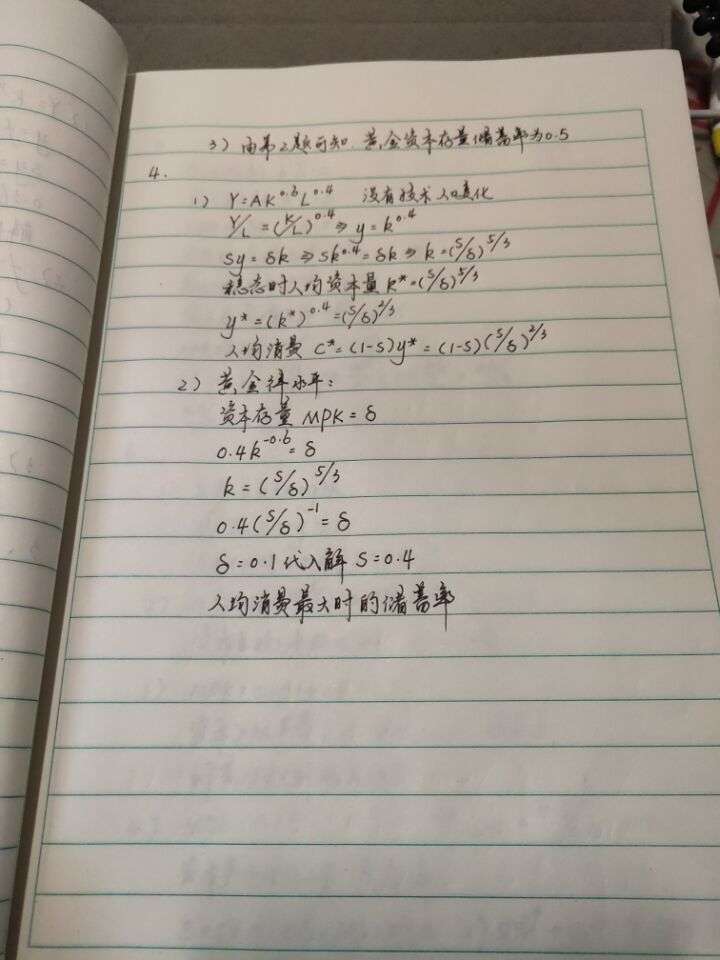 3) 由第2题可知. 黄金资本存量储蓄率为0.5
4.
1) Y=AK^0.6 L^0.4 没有技术人口变化
Y/L=(K/L)^0.4⇒y=k^0.4
sy=δk⇒sk^0.4=δk⇒k=(s/δ)^5/3
稳态时人均资本量k*=(s/δ)^5/3
y*=(k*)^0.4=(s/δ)^2/3
人均消费 C*=(1-s)y*=(1-s)(s/δ)^2/3
2) 黄金律水平:
资本存量 MPK=δ
0.4k^-0.6=δ
k=(s/δ)^5/3
0.4(s/δ)^-1=δ
δ=0.1代入解 s=0.4
人均消费最大时的储蓄率